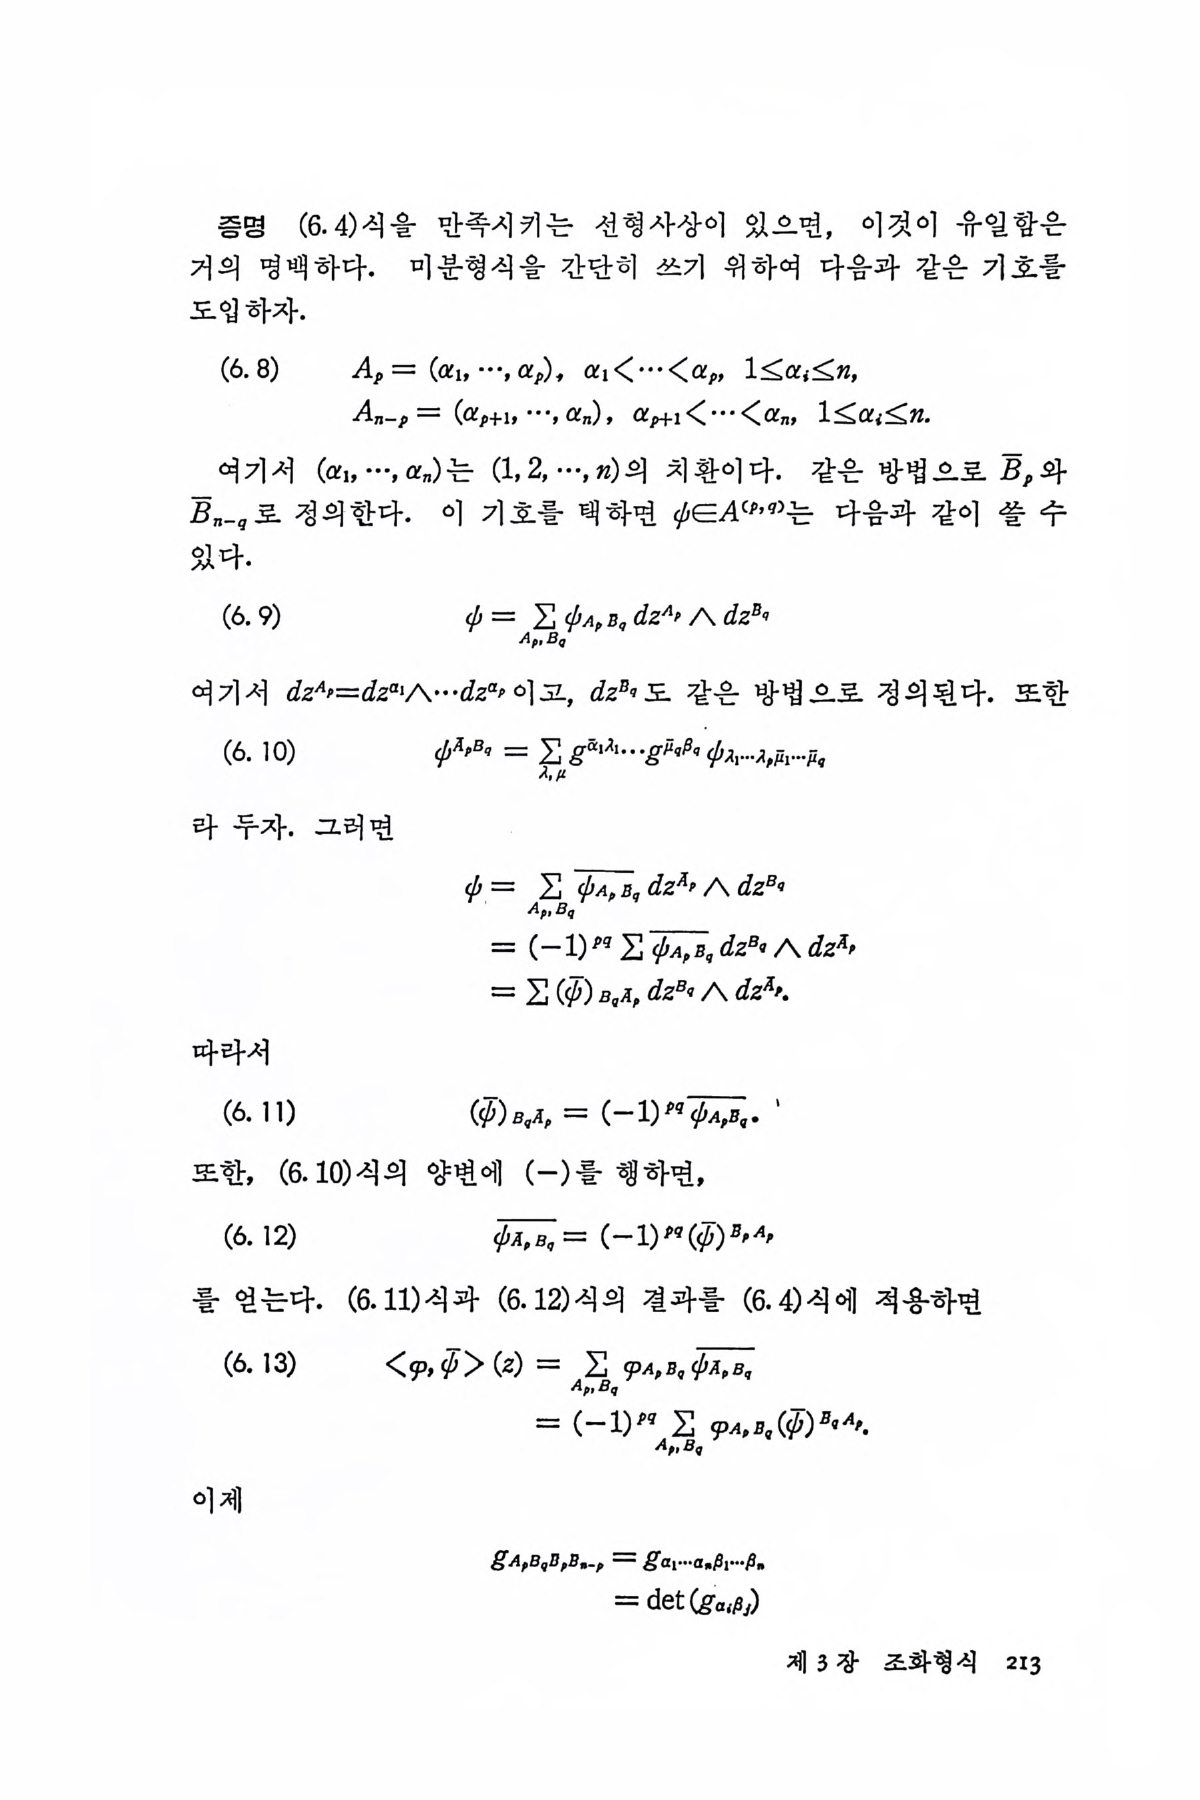 증명 (6.4)식을 만족시키는 선형사상이 있으면, 이것이 유일함은
거의 명백하다. 미분형식을 간단히 쓰기 위하여 다음과 같은 기호를
도입하자.
(6.8) Aₚ = (α₁, ⋯, αₚ), α₁<⋯<αₚ, 1≤αᵢ≤n,
A_{n-p} = (α_{p+1}, ⋯, α_n), α_{p+1}<⋯<α_n, 1≤α_i≤n.
여기서 (α₁, ⋯, α_n)는 (1, 2, ⋯, n)의 치환이다. 같은 방법으로 \overline{B}_p와
\overline{B}_{n-q}로 정의한다. 이 기호를 택하면 ψ∈A^{(p,q)}는 다음과 같이 쓸 수
있다.
(6.9) ψ = \sum_{A_p, B_q} ψ_{A_p \bar{B}_q} dz^{A_p} ∧ dz^{\bar{B}_q}
여기서 dz^{A_p}=dz^{α_1}∧⋯dz^{α_p}이고, dz^{\bar{B}_q}도 같은 방법으로 정의된다. 또한
(6.10) ψ^{\bar{A}_p B_q} = \sum_{λ, μ} g^{\bar{α}_1 λ_1}⋯g^{\bar{μ}_q β_q} ψ_{λ_1⋯λ_p \bar{μ}_1⋯\bar{μ}_q}
라 두자. 그러면
ψ = \sum_{A_p, B_q} \overline{ψ_{A_p \bar{B}_q}} dz^{\bar{A}_p} ∧ dz^{B_q}
= (-1)^{pq} \sum \overline{ψ_{A_p \bar{B}_q}} dz^{B_q} ∧ dz^{\bar{A}_p}
= \sum (\bar{ψ})_{B_q \bar{A}_p} dz^{B_q} ∧ dz^{\bar{A}_p}.
따라서
(6.11) (\bar{ψ})_{B_q \bar{A}_p} = (-1)^{pq} \overline{ψ_{A_p \bar{B}_q}}.
또한, (6.10)식의 양변에 (-)를 행하면,
(6.12) \overline{ψ_{\bar{A}_p B_q}} = (-1)^{pq} (\bar{ψ})^{\bar{B}_p A_p}
를 얻는다. (6.11)식과 (6.12)식의 결과를 (6.4)식에 적용하면
(6.13) <φ, \bar{ψ}>(z) = \sum_{A_p, B_q} φ_{A_p \bar{B}_q} \overline{ψ_{\bar{A}_p B_q}}
= (-1)^{pq} \sum_{A_p, B_q} φ_{A_p \bar{B}_q} (\bar{ψ})^{\bar{B}_q A_p}.
이제
g_{A_p B_q \bar{B}_p B_{n-p}} = g_{α_1⋯α_n β_1⋯β_n}
= det(g_{α_i β_j})
제 3 장 조화형식 213